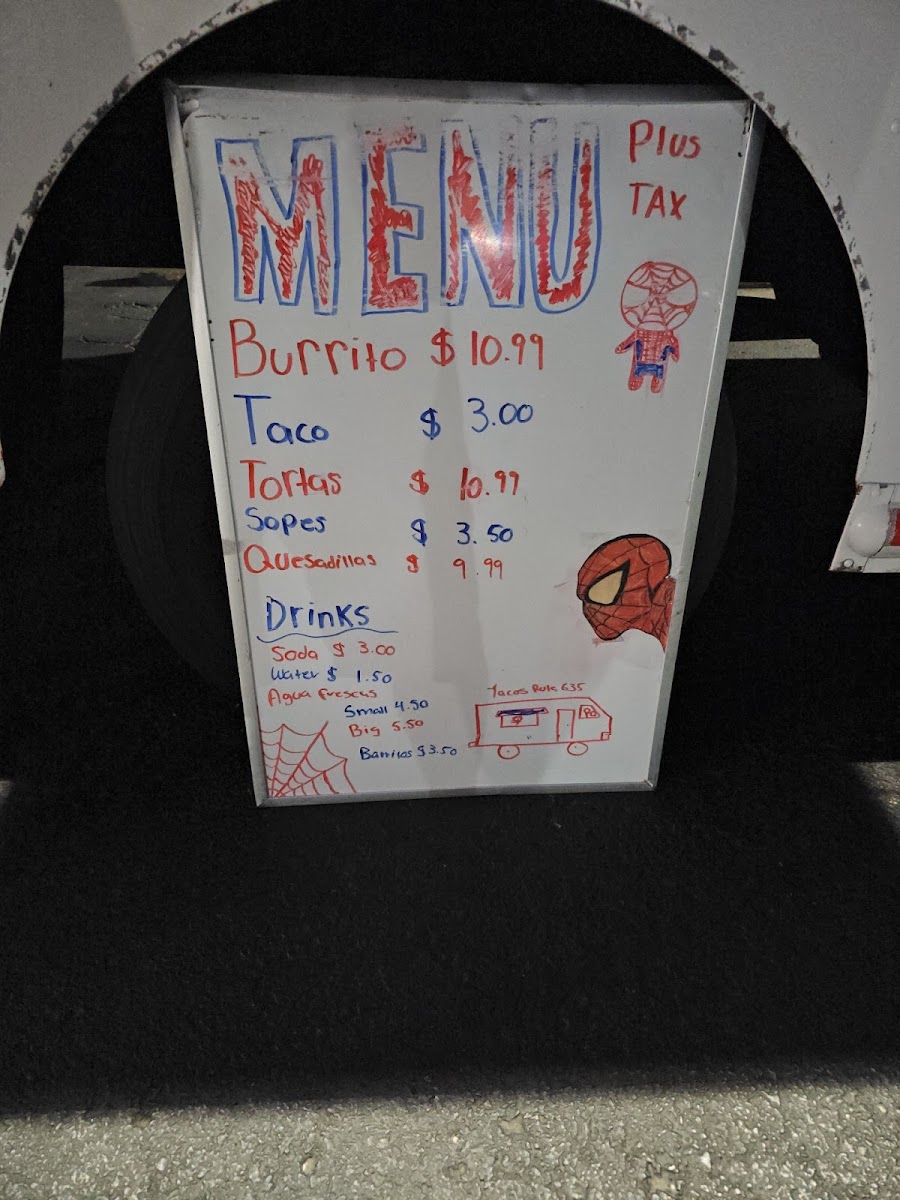 MENU
Plus
TAX
Burrito $ 10.99
Taco $ 3.00
Tortas $ 10.99
Sopes $ 3.50
Quesadillas $ 9.99
Drinks
Soda $ 3.00
Water $ 1.50
Agua frescas
Small 4.50
Big 5.50
Barritos $3.50
Tacos Ruta 635